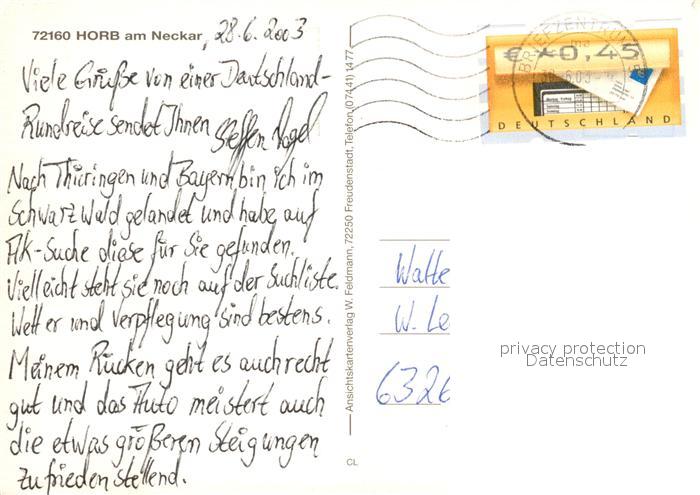 72160 HORB am Neckar, 28.6.2003
Viele Grüße von einer Deutschland-
Rundreise sendet Ihnen Steffen Vogel
Nach Thüringen und Bayern bin ich im
Schwarzwald gelandet und habe auf
AK-Suche diese für Sie gefunden.
Vielleicht steht sie noch auf der Suchliste.
Wetter und Verpflegung sind bestens.
Meinem Rücken geht es auch recht
gut und das Auto meistert auch
die etwas größeren Steigungen
zufriedenstellend.
Ansichtskartenverlag W. Feldmann, 72250 Freudenstadt, Telefon (07441) 1477
CL
BRIEFZENTRUM
€ *0,45
DEUTSCHLAND
Walte
W. Le
6326
privacy protection
Datenschutz